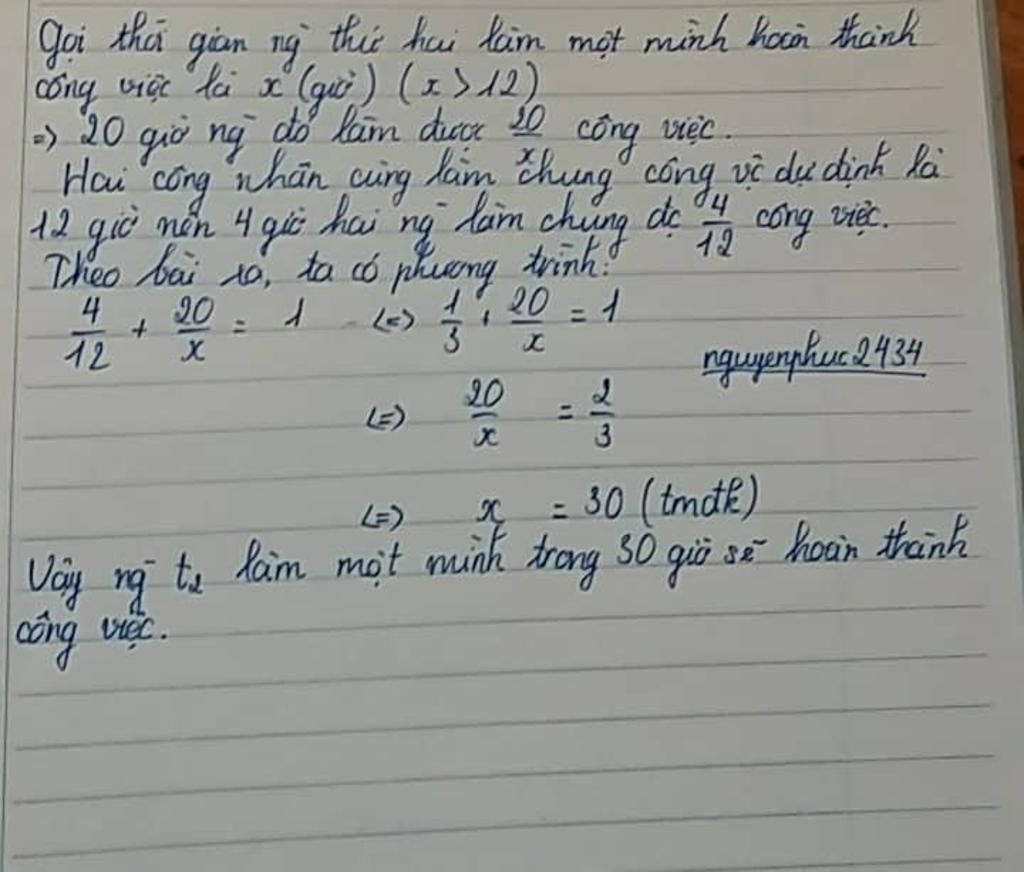 Gọi thời gian ng̀ thứ hai làm một mình hoàn thành
công việc là x (giờ) (x > 12)
=> 20 giờ ng̀ đó làm được 20/x công việc.
Hai công nhân cùng làm chung công vc̣ dự định là
12 giờ nên 4 giờ hai ng̀ làm chung đc 4/12 công việc.
Theo bài ra, ta có phương trình:
4/12 + 20/x = 1 (=) 1/3 + 20/x = 1
nguyenphuc2434
(=) 20/x = 2/3
(=) x = 30 (tmđk)
Vậy ng̀ t2 làm một mình trong 30 giờ sẽ hoàn thành
công việc.